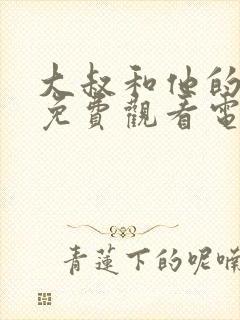 大叔和他的
免費觀看電
青蓮下的呢喃